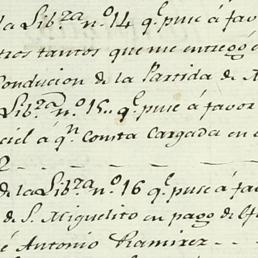 la Lib.za n.o 14 q.e puse á favo
tros tantos que me entregó
Conducion de la Partida de A
Lib.za n.o 15.. q.e puse á favor
ciel a q.n Consta Cargada en
de la Lib.za n.o 16 q.e puse á fa
de S. Miguelito en pago de
é Antonio Ramirez - -